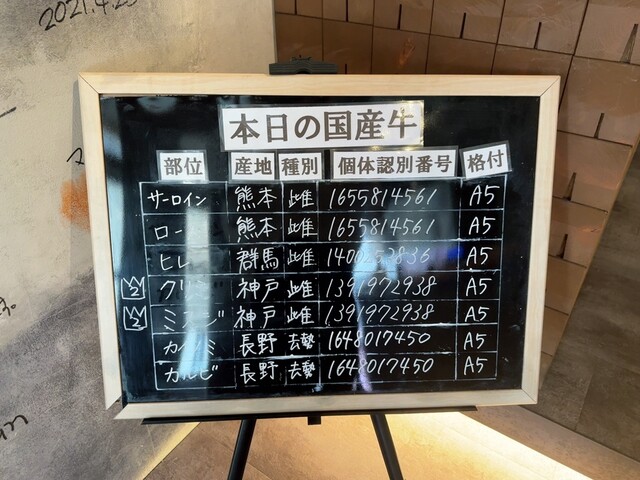 2021.4.23
本日の国産牛
部位 産地 種別 個体認別番号 格付
サーロイン 熊本 雌 1655814561 A5
ロース 熊本 雌 1655814561 A5
ヒレ 群馬 雌 A5
2 クリミ 神戸 雌 1391972938 A5
2 ミスジ 神戸 雌 1391972938 A5
カイノミ 長野 去勢 1648017450 A5
カルビ 長野 去勢 1648017450 A5